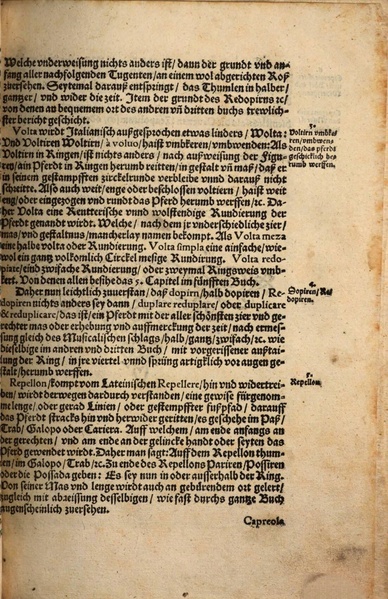 Welche vnderweisung nichts anders ist/ dann der grundt vnd an-
fang aller nachfolgenden Tugenten/ an einem wol abgerichten Roß
zuersehen. Seytemal darauß entspringt/ das Thumlen in halber/
gantzer/ vnd wider die zeit. Item der grundt des Redopirns ꝛc/
von denen an bequemem ort des andren vñ dritten buchs trewlich-
ster bericht geschicht.
Volta wirdt Italianisch außgesprochen etwas linders/ Wolta:
Vnd Voltiren Woltirn/ à voluo/ haist vmbkeren/ vmbwenden: Als
Voltirn in Ringen/ ist nichts anders/ nach außweisung der Figu-
ren/ ain Pferdt in Ringen herumb reitten/ in gestalt vñ maß/ daß er
in seinem gestampfften zirckelrunde verbleibe vnnd darauß nicht
schreitte. Also auch weit/ enge oder beschlossen voltiern/ haist weit
eng/ oder eingezogen vnd rundt das Pferdt herumb werffen/ ꝛc. Da-
her Volta eine Rentterische vnnd wolstendige Rundierung der
Pferdt genant wirdt. Welche/ nach dem jr vnderschiedliche zier/
mas/ vnd gestalt/ mancherlay namen bekompt. Als Volta meza
eine halbe volta oder Rundierung. Volta simpla eine ainfache/ wie-
wol ein gantz volkomlich Circkel mesige Rundirung. Volta redo-
piate/ eind zwifache Rundirung/ oder zweymal Ringsweis vmb-
kert. Von denen allen besihe das 5. Capitel im fünfften Buch.
Daher nun leichtlich zuuerstan/ daß dopirn/ halb dopiren/ Re-
dopiren nichts anders sey dann/ duplare reduplare/ oder duplicare
& reduplicare/ das ist/ ein Pferdt mit der aller schönsten zier vnd ge-
rechter mas oder erhebung vnd auffmerckung der zeit/ nach ermes-
sung gleich des Musicalischen schlags/ halb/ gantz/ zwifach/ ꝛc. wie
dieselbige im andren vnd dritten Buch/ mit vorgerissener außtai-
lung der Ring/ in jre viertel vnnd sprüng artigklich vor augen ge-
stalt/ herumb werffen.
Repellon/ kompt vom Lateinischen Repellere/ hin vnd widertrei-
ben/ wirdt derwegen dardurch verstanden/ eine gewise fürgenom-
me lenge/ oder gerad Linien/ oder gestempffter fußpfad/ darauff
das Pferdt stracks hin vnd herwider geritten/ es geschehe im Paß/
Trab/ Galopo oder Cariera. Auff welchem/ am ende anfangs an
der gerechten/ vnd am ende an der gelincke handt oder seyten das
Pferd gewendet wirdt. Daher man sagt: Auff dem Repellon thum-
len/ im Galopo/ Trab/ ꝛc. Zu ende des Repollons Pariren/ Possiren
oder die Possada geben: Es sey nun in oder ausserhalb der Ring.
Von seiner Mas vnd lenge wirdt auch an gebürendem ort gelert/
zugleich mit abreissung desselbigen/ wie fast durchs gantze Buch
augenscheinlich zuersehen.
Capreola
3.
Voltirn vmbke-
ren/ vmbwen-
den/ das pferdt
geschicklich he-
rumb werffen.
4.
Dopiren/ Re-
dopiren.
5.
Repellon.